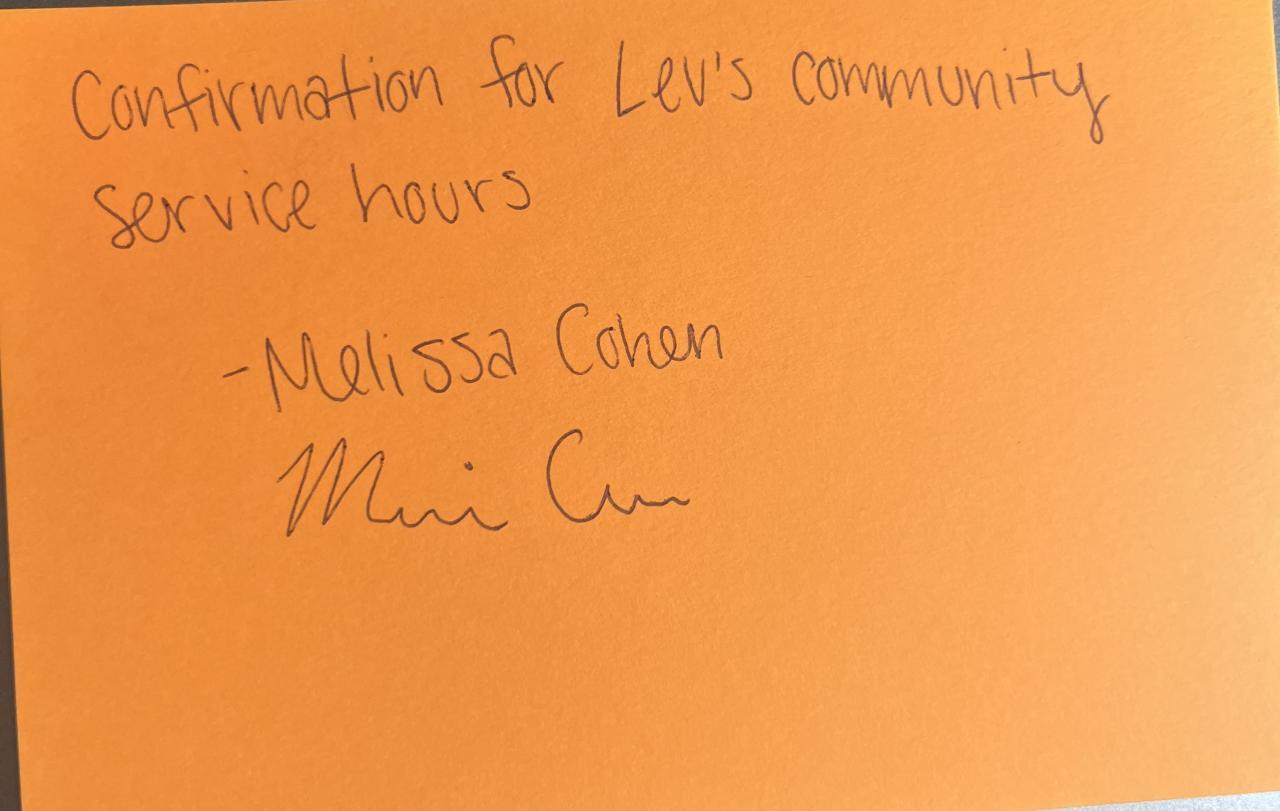 Confirmation for Lev's community
service hours
-Melissa Cohen